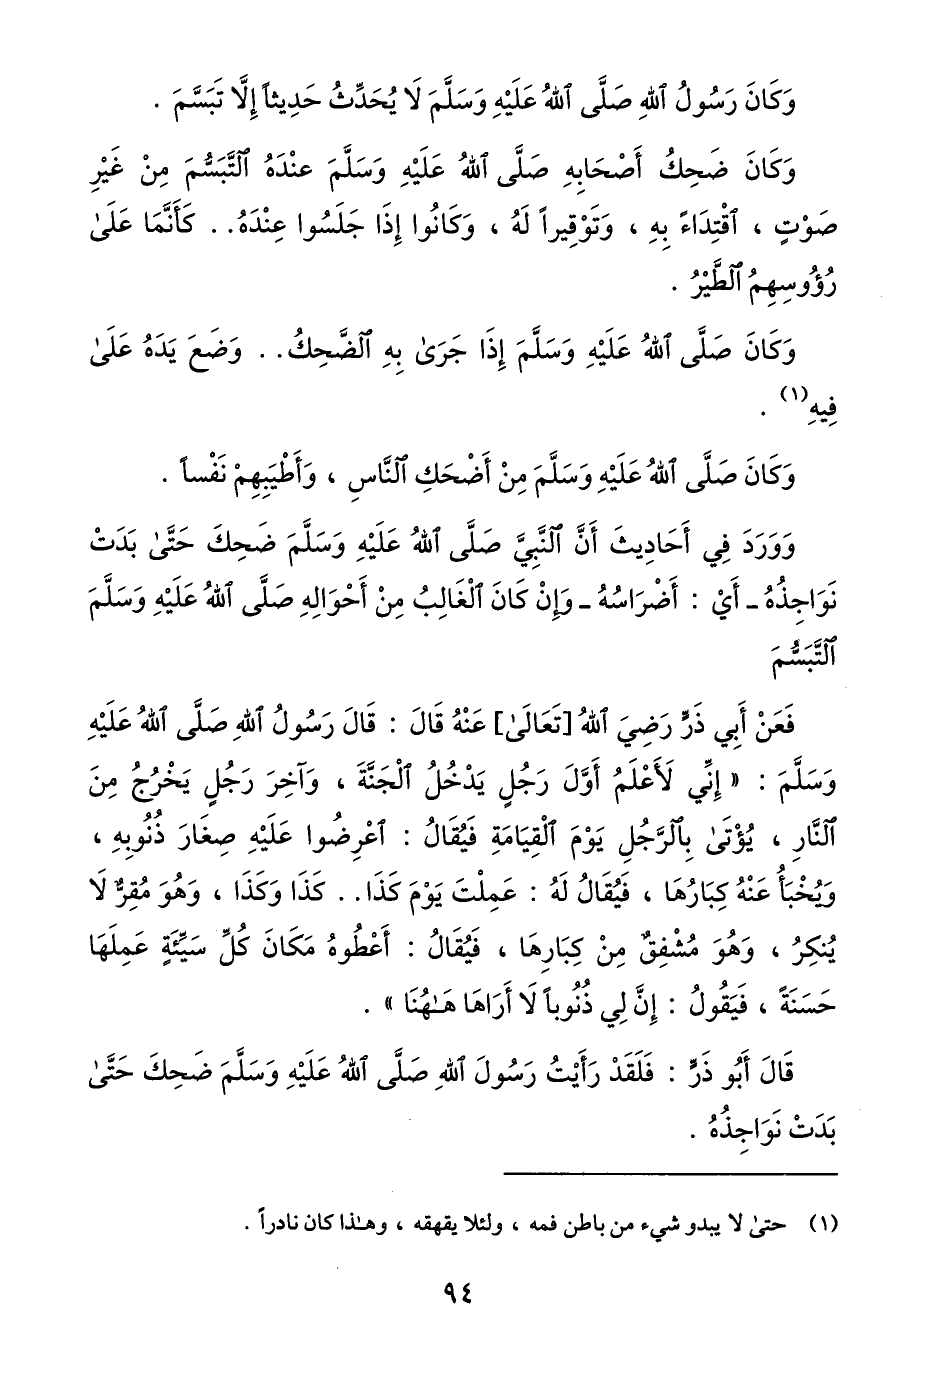 وَكَانَ رَسُولُ ٱللهِ صَلَّى ٱللهُ عَلَيْهِ وَسَلَّمَ لَا يُحَدِّثُ حَدِيثاً إِلَّا تَبَسَّمَ .
وَكَانَ ضَحِكُ أَصْحَابِهِ صَلَّى ٱللهُ عَلَيْهِ وَسَلَّمَ عنْدَهُ ٱلتَّبَسُّمَ مِنْ غَيْرِ
صَوْتٍ ، ٱقْتِدَاءً بِهِ ، وَتَوْقِيراً لَهُ ، وَكَانُوا إِذَا جَلَسُوا عِنْدَهُ . . كَأَنَّمَا عَلَىٰ
رُؤُوسِهِمُ ٱلطَّيْرُ .
وَكَانَ صَلَّى ٱللهُ عَلَيْهِ وَسَلَّمَ إِذَا جَرَىٰ بِهِ ٱلضَّحِكُ . . وَضَعَ يَدَهُ عَلَىٰ
فِيهِ(١) .
وَكَانَ صَلَّى ٱللهُ عَلَيْهِ وَسَلَّمَ مِنْ أَضْحَكِ ٱلنَّاسِ ، وَأَطْيَبِهِمْ نَفْساً .
وَوَرَدَ فِي أَحَادِيثَ أَنَّ ٱلنَّبِيَّ صَلَّى ٱللهُ عَلَيْهِ وَسَلَّمَ ضَحِكَ حَتَّىٰ بَدَتْ
نَوَاجِذُهُ ـ أَيْ : أَضْرَاسُهُ ـ وَإِنْ كَانَ ٱلْغَالِبُ مِنْ أَحْوَالِهِ صَلَّى ٱللهُ عَلَيْهِ وَسَلَّمَ
ٱلتَّبَسُّمَ
فَعَنْ أَبِي ذَرٍّ رَضِيَ ٱللهُ [تَعَالَىٰ] عَنْهُ قَالَ : قَالَ رَسُولُ ٱللهِ صَلَّى ٱللهُ عَلَيْهِ
وَسَلَّمَ : « إِنِّي لَأَعْلَمُ أَوَّلَ رَجُلٍ يَدْخُلُ ٱلْجَنَّةَ ، وَآخِرَ رَجُلٍ يَخْرُجُ مِنَ
ٱلنَّارِ ، يُؤْتَىٰ بِٱلرَّجُلِ يَوْمَ ٱلْقِيَامَةِ فَيُقَالُ : ٱعْرِضُوا عَلَيْهِ صِغَارَ ذُنُوبِهِ ،
وَيُخْبَأُ عَنْهُ كِبَارُهَا ، فَيُقَالُ لَهُ : عَمِلْتَ يَوْمَ كَذَا . . كَذَا وَكَذَا ، وَهُوَ مُقِرٌّ لَا
يُنكِرُ ، وَهُوَ مُشْفِقٌ مِنْ كِبَارِهَا ، فَيُقَالُ : أَعْطُوهُ مَكَانَ كُلِّ سَيِّئَةٍ عَمِلَهَا
حَسَنَةً ، فَيَقُولُ : إِنَّ لِي ذُنُوباً لَا أَرَاهَا هَـٰهُنَا » .
قَالَ أَبُو ذَرٍّ : فَلَقَدْ رَأَيْتُ رَسُولَ ٱللهِ صَلَّى ٱللهُ عَلَيْهِ وَسَلَّمَ ضَحِكَ حَتَّىٰ
بَدَتْ نَوَاجِذُهُ .
(١) حتىٰ لا يبدو شيء من باطن فمه ، ولئلا يقهقه ، وهـٰذا كان نادراً .
٩٤